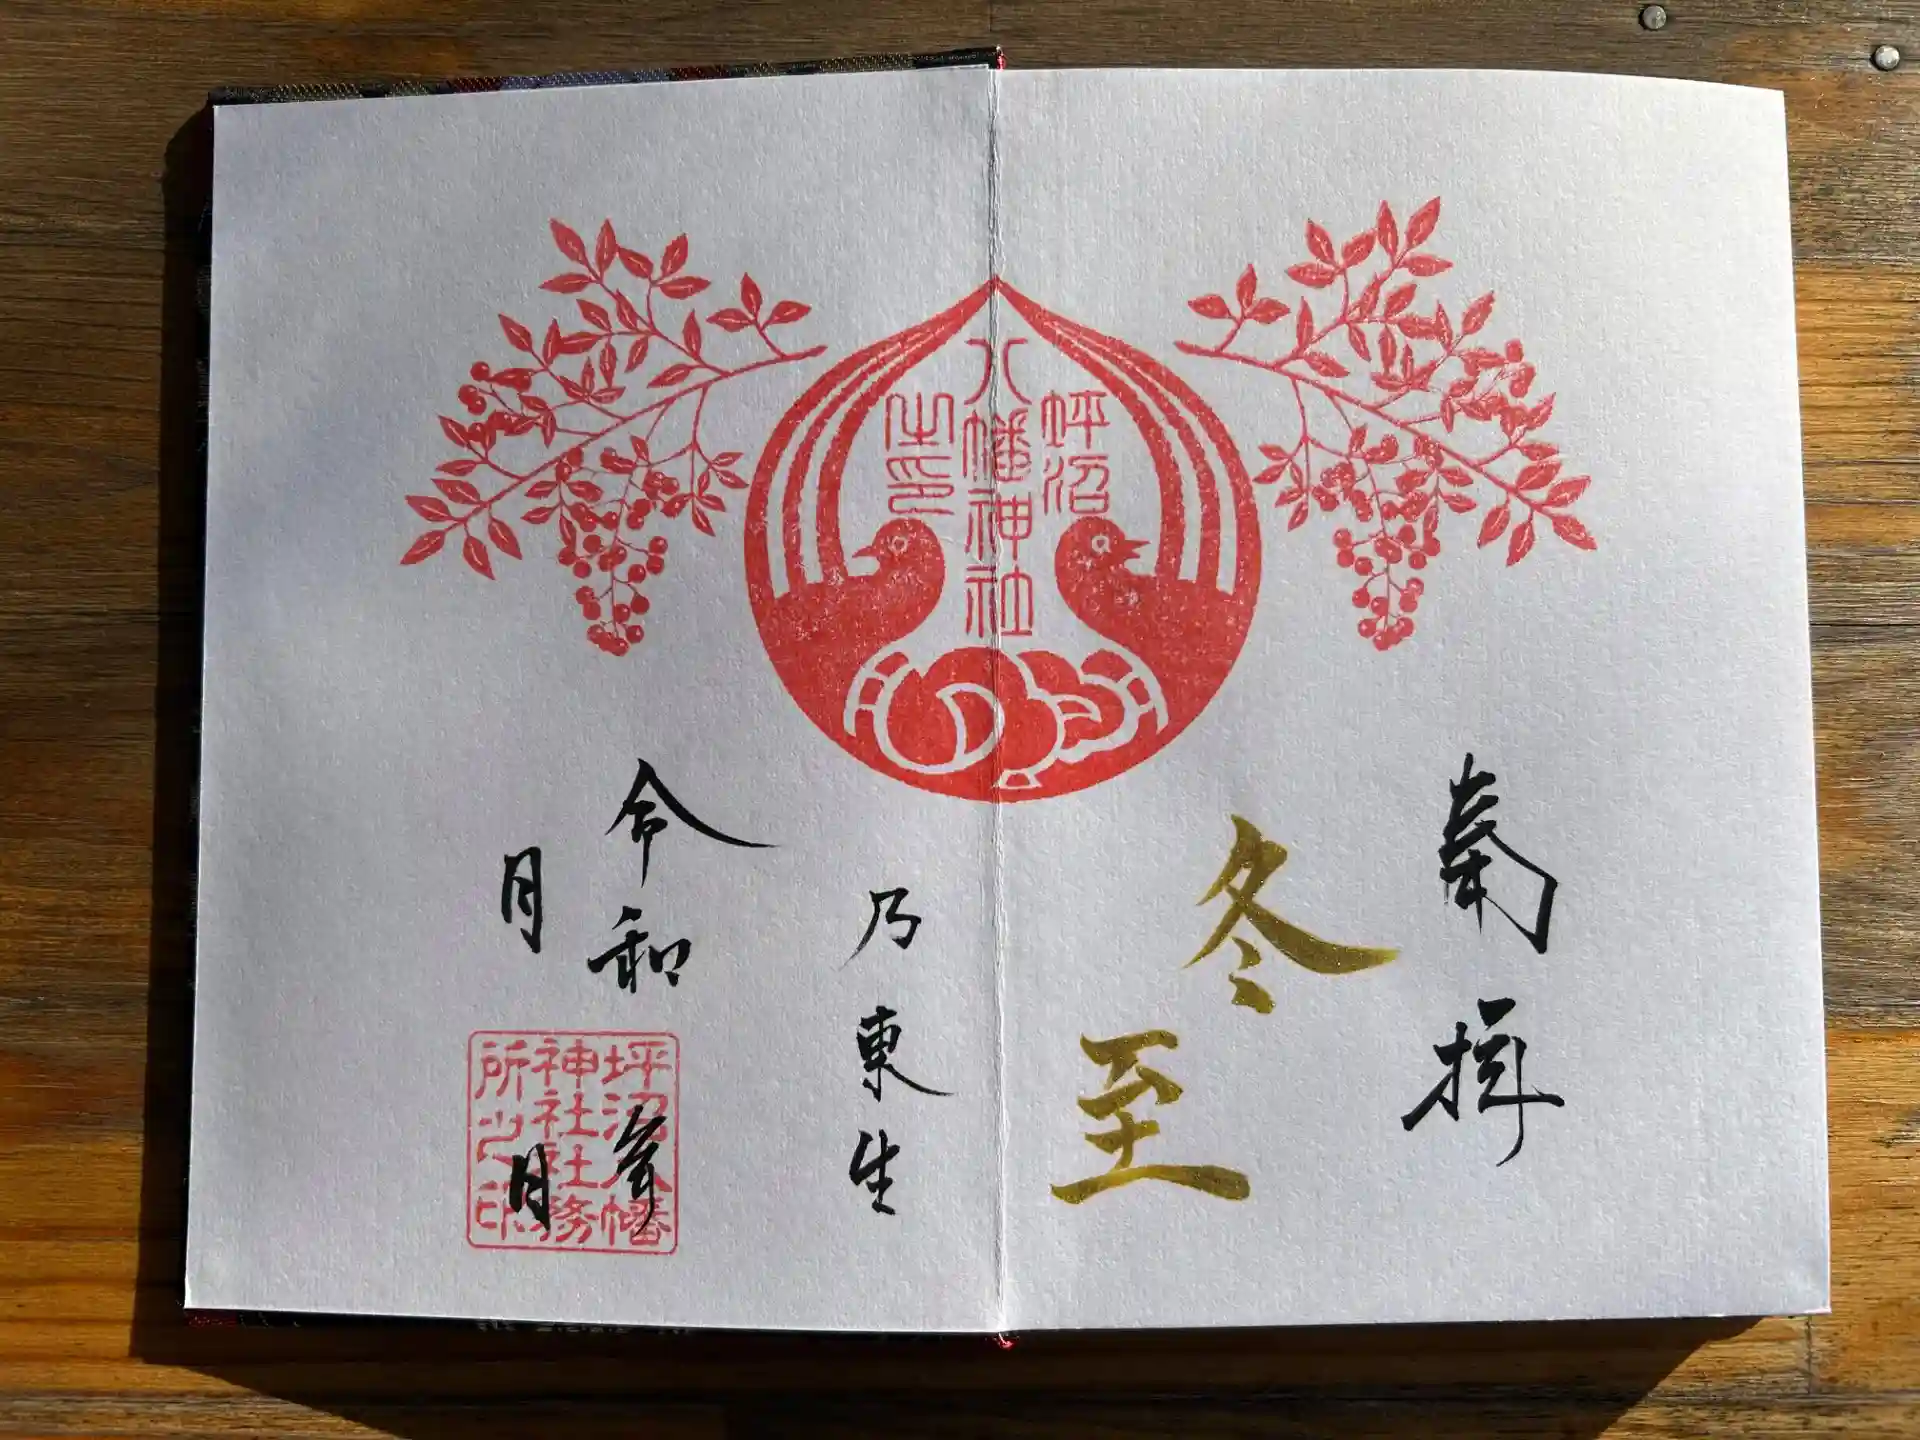 坪沼
八幡神社
之印
奉拝
冬至
乃東生
令和 年
月 日
坪沼八幡
神社社務
所之印